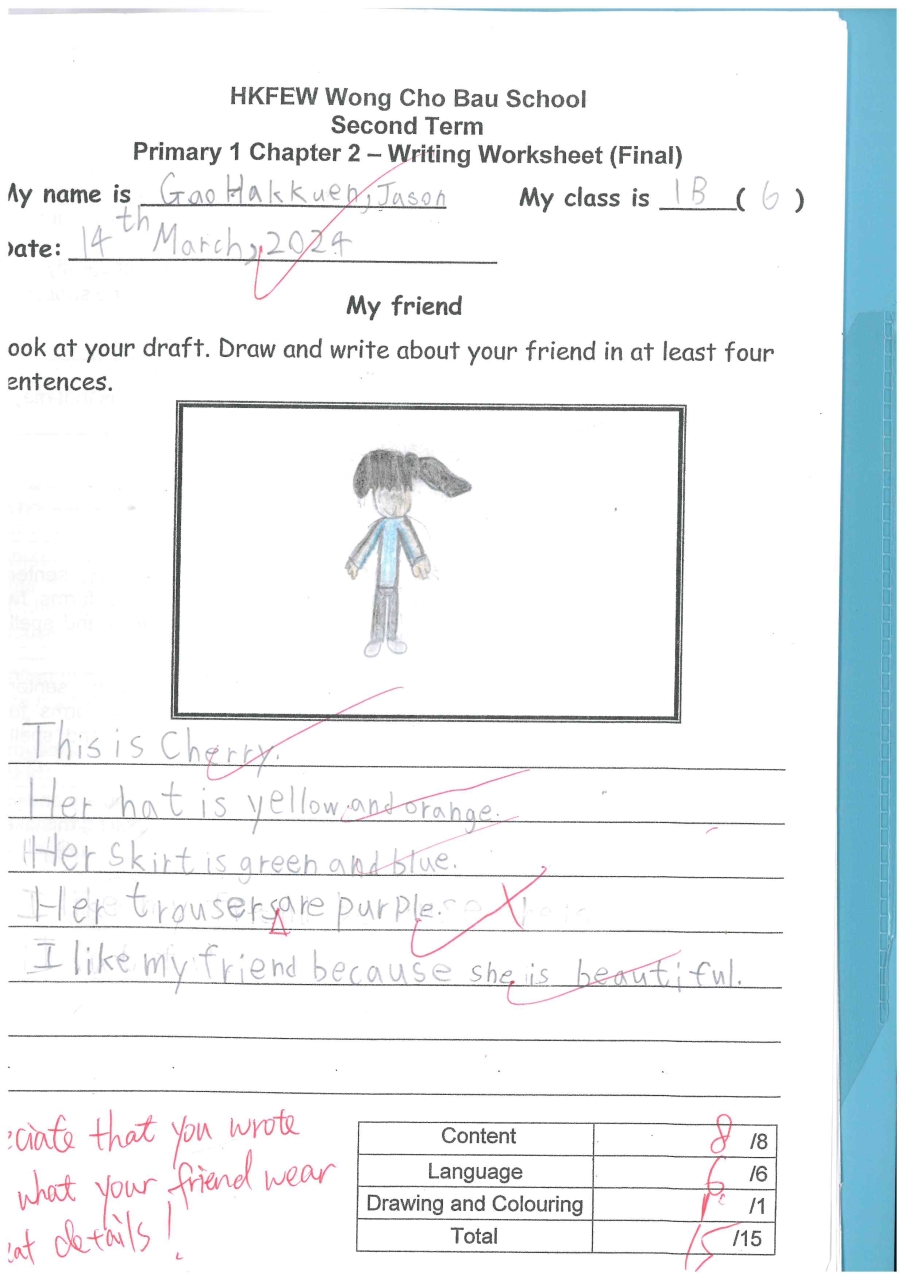 HKFEW Wong Cho Bau School
Second Term
Primary 1 Chapter 2 – Writing Worksheet (Final)
My name is Gao Hakkuen, Jason My class is 1B ( 6 )
Date: 14th March, 2024
My friend
ook at your draft. Draw and write about your friend in at least four
entences.
This is Cherry.
Her hat is yellow and orange.
Her skirt is green and blue.
Her trousers are purple.
I like my friend because she is beautiful.
eciate that you wrote
what your friend wear
eat details!
Content 8 /8
Language 6 /6
Drawing and Colouring 1 /1
Total 15 /15